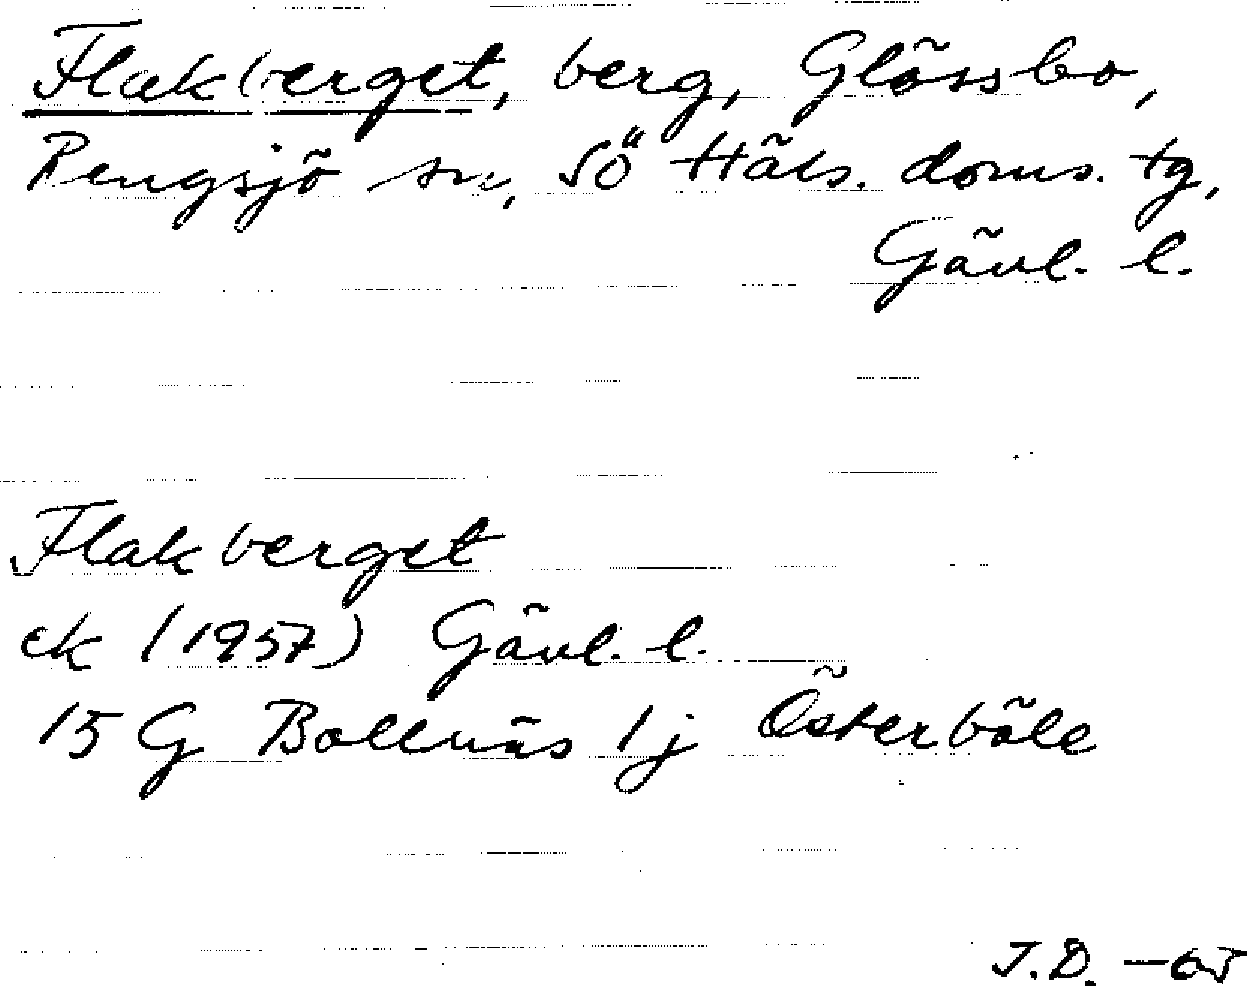 Flakberget, berg, Glössbo,
Rengsjö sn, Sö Häls. doms. tg,
Gävl. l.
Flakberget
ek (1957) Gävl. l.
15 G Bollnäs 1j Österböle
J.D. -65